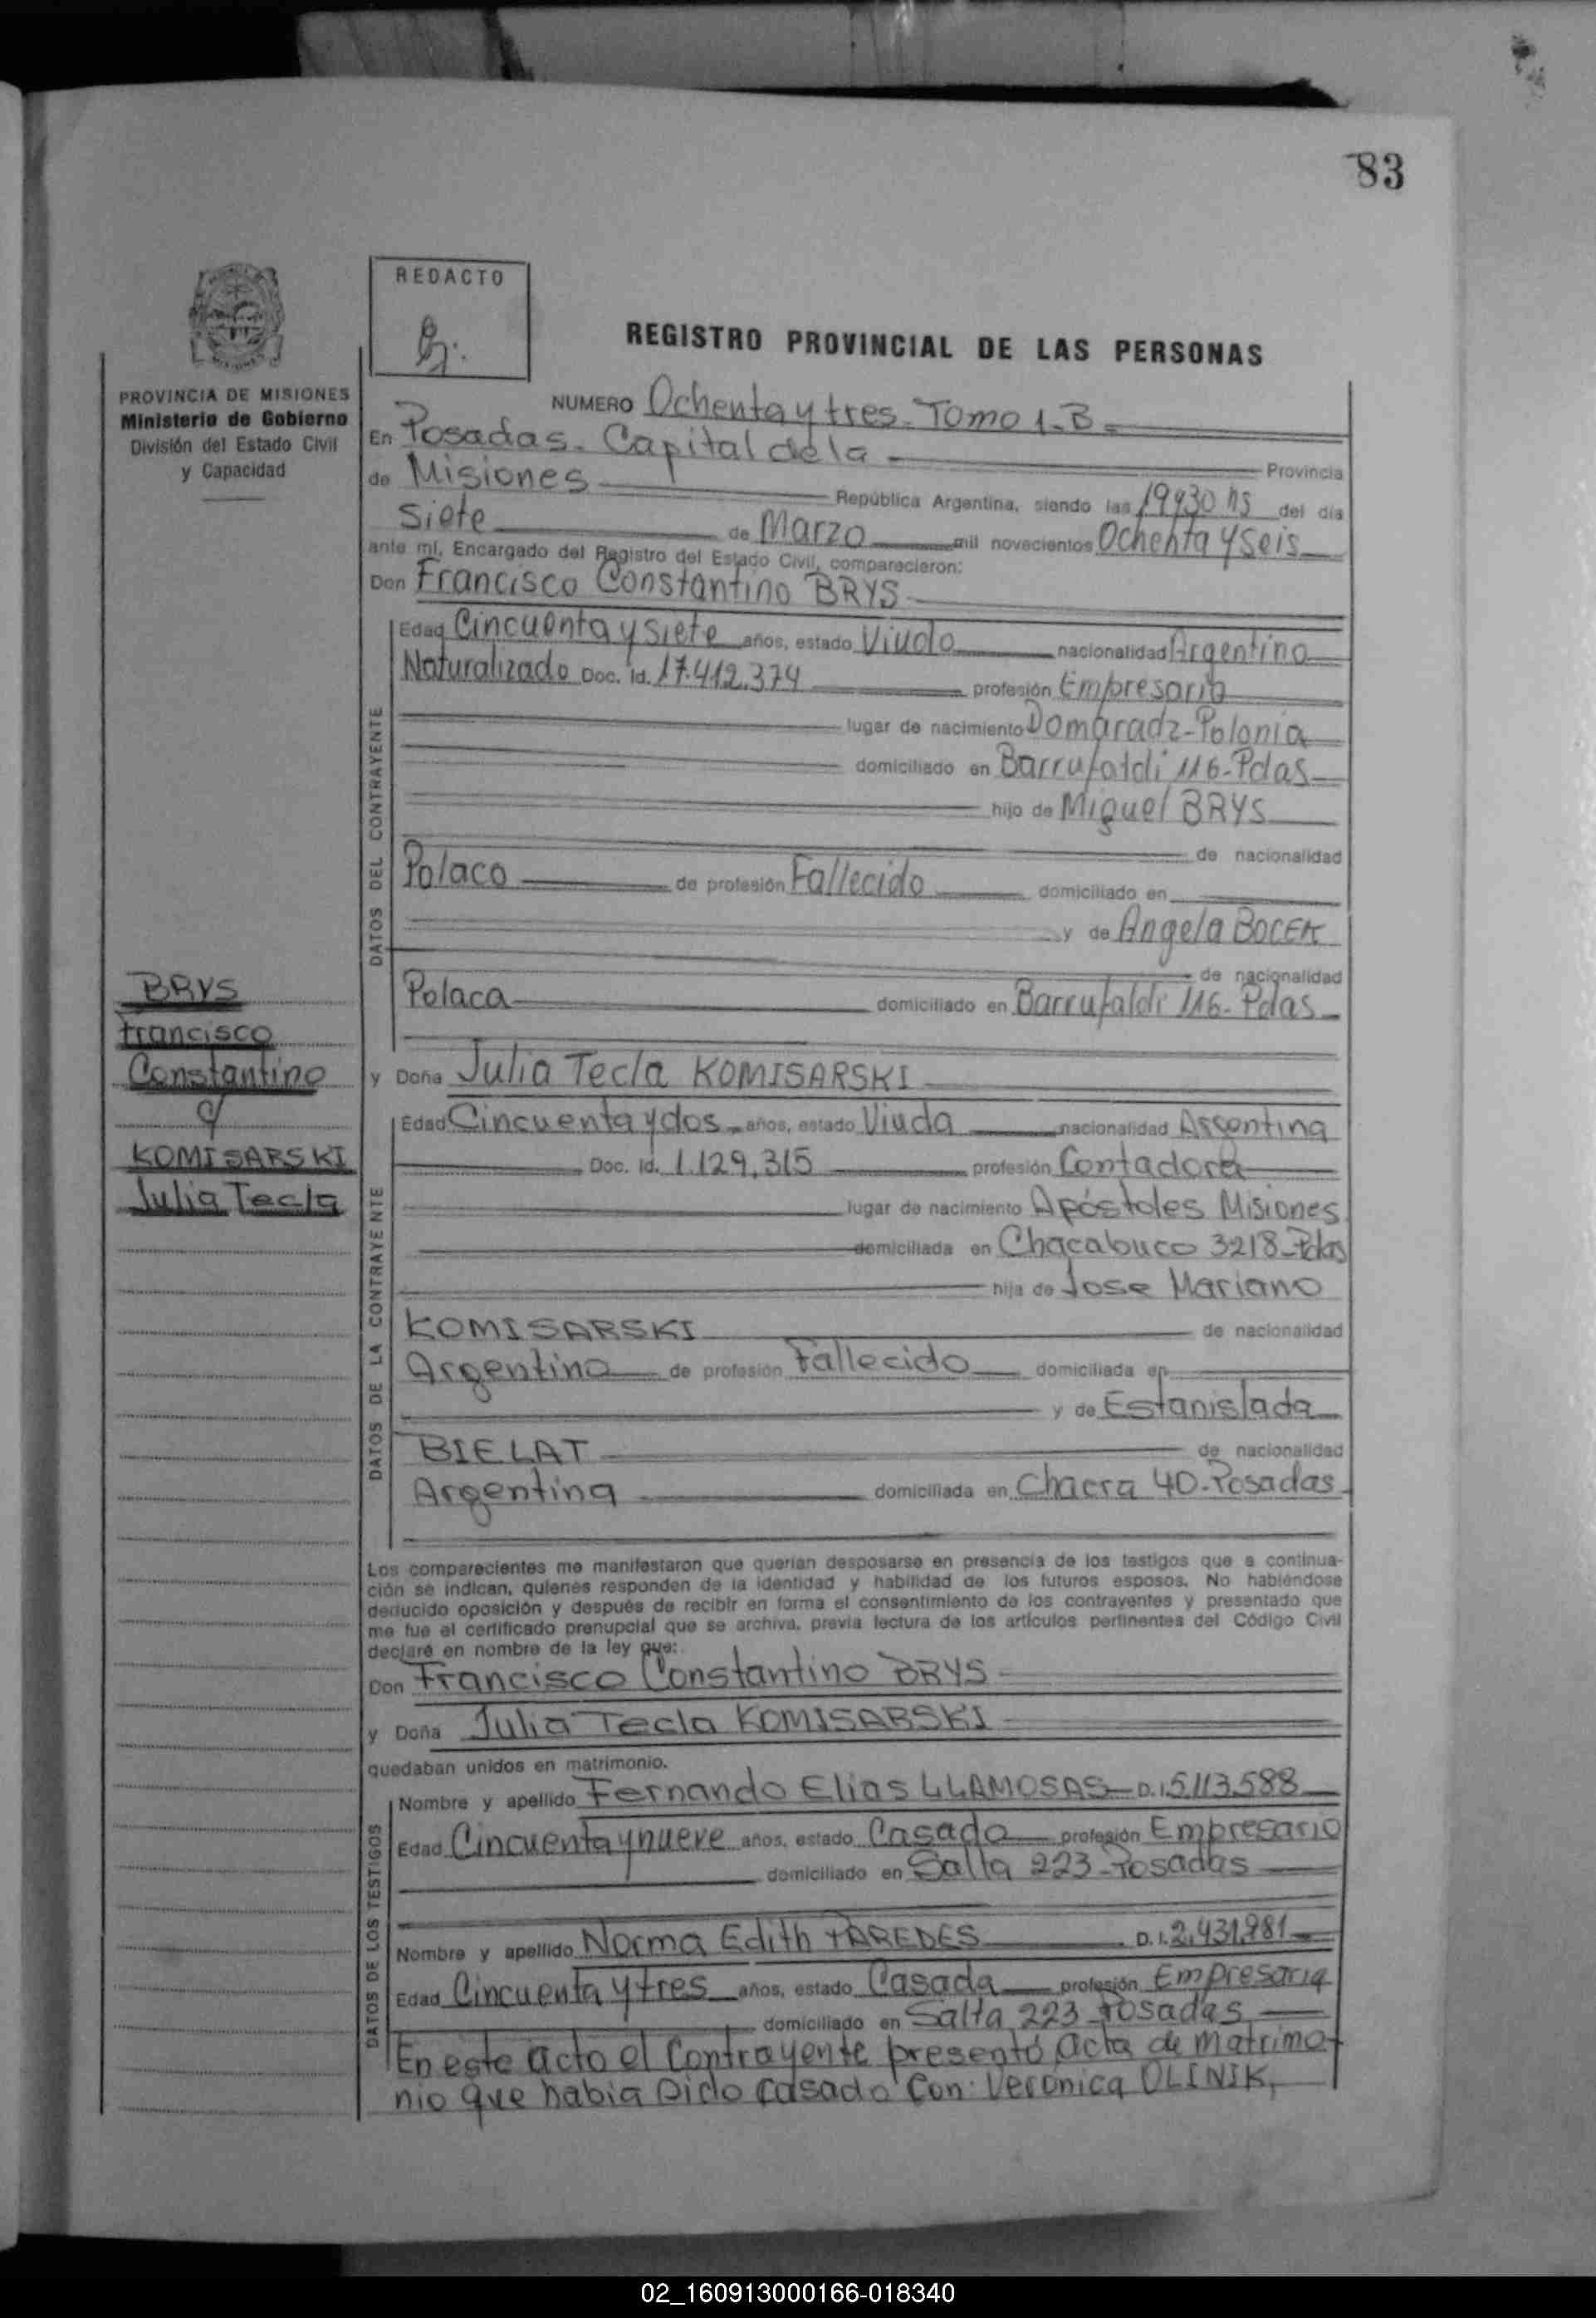 83
REDACTO
REGISTRO PROVINCIAL DE LAS PERSONAS
PROVINCIA DE MISIONES
Ministerio de Gobierno
División del Estado Civil
y Capacidad
NUMERO Ochenta y tres. Tomo 1-B
En Posadas. Capital de la Provincia
de Misiones República Argentina, siendo las 19y30 hs del día
Siete de Marzo mil novecientos Ochenta y Seis
ante mí, Encargado del Registro del Estado Civil, comparecieron:
Don Francisco Constantino BRYS
DATOS DEL CONTRAYENTE
Edad Cincuenta y siete años, estado Viudo nacionalidad Argentino
Naturalizado Doc. Id. 17.412.374 profesión Empresario
lugar de nacimiento Domaradz-Polonia
domiciliado en Barrufaldi 116-Pdas
hijo de Miguel BRYS
de nacionalidad
Polaco de profesión Fallecido domiciliado en
y de Angela BOCEK
de nacionalidad
Polaca domiciliado en Barrufaldi 116-Pdas
BRYS
Francisco
Constantino
c/
KOMISARSKI
Julia Tecla
y Doña Julia Tecla KOMISARSKI
DATOS DE LA CONTRAYENTE
Edad Cincuenta y dos años, estado Viuda nacionalidad Argentina
Doc. Id. 1.129.315 profesión Contadora
lugar de nacimiento Apóstoles Misiones
domiciliada en Chacabuco 3218-Pdas
hija de Jose Mariano
KOMISARSKI de nacionalidad
Argentino de profesión Fallecido domiciliada en
y de Estanislada
BIELAT de nacionalidad
Argentina domiciliada en Chacra 40-Posadas
Los comparecientes me manifestaron que querían desposarse en presencia de los testigos que a continua-
ción se indican, quienes responden de la identidad y habilidad de los futuros esposos. No habiéndose
deducido oposición y después de recibir en forma el consentimiento de los contrayentes y presentado que
me fue el certificado prenupcial que se archiva, previa lectura de los artículos pertinentes del Código Civil
declaré en nombre de la ley que:
Don Francisco Constantino BRYS
y Doña Julia Tecla KOMISARSKI
quedaban unidos en matrimonio.
DATOS DE LOS TESTIGOS
Nombre y apellido Fernando Elias LLAMOSAS D.I. 5.113.588
Edad Cincuenta y nueve años, estado Casado profesión Empresario
domiciliado en Salta 223-Posadas
Nombre y apellido Norma Edith PAREDES D.I. 2.431.981
Edad Cincuenta y tres años, estado Casada profesión Empresaria
domiciliado en Salta 223 Posadas
En este acto el Contrayente presentó acta de matrimo-
nio que habia Sido casado Con: Veronica OLINIK,
02_160913000166-018340